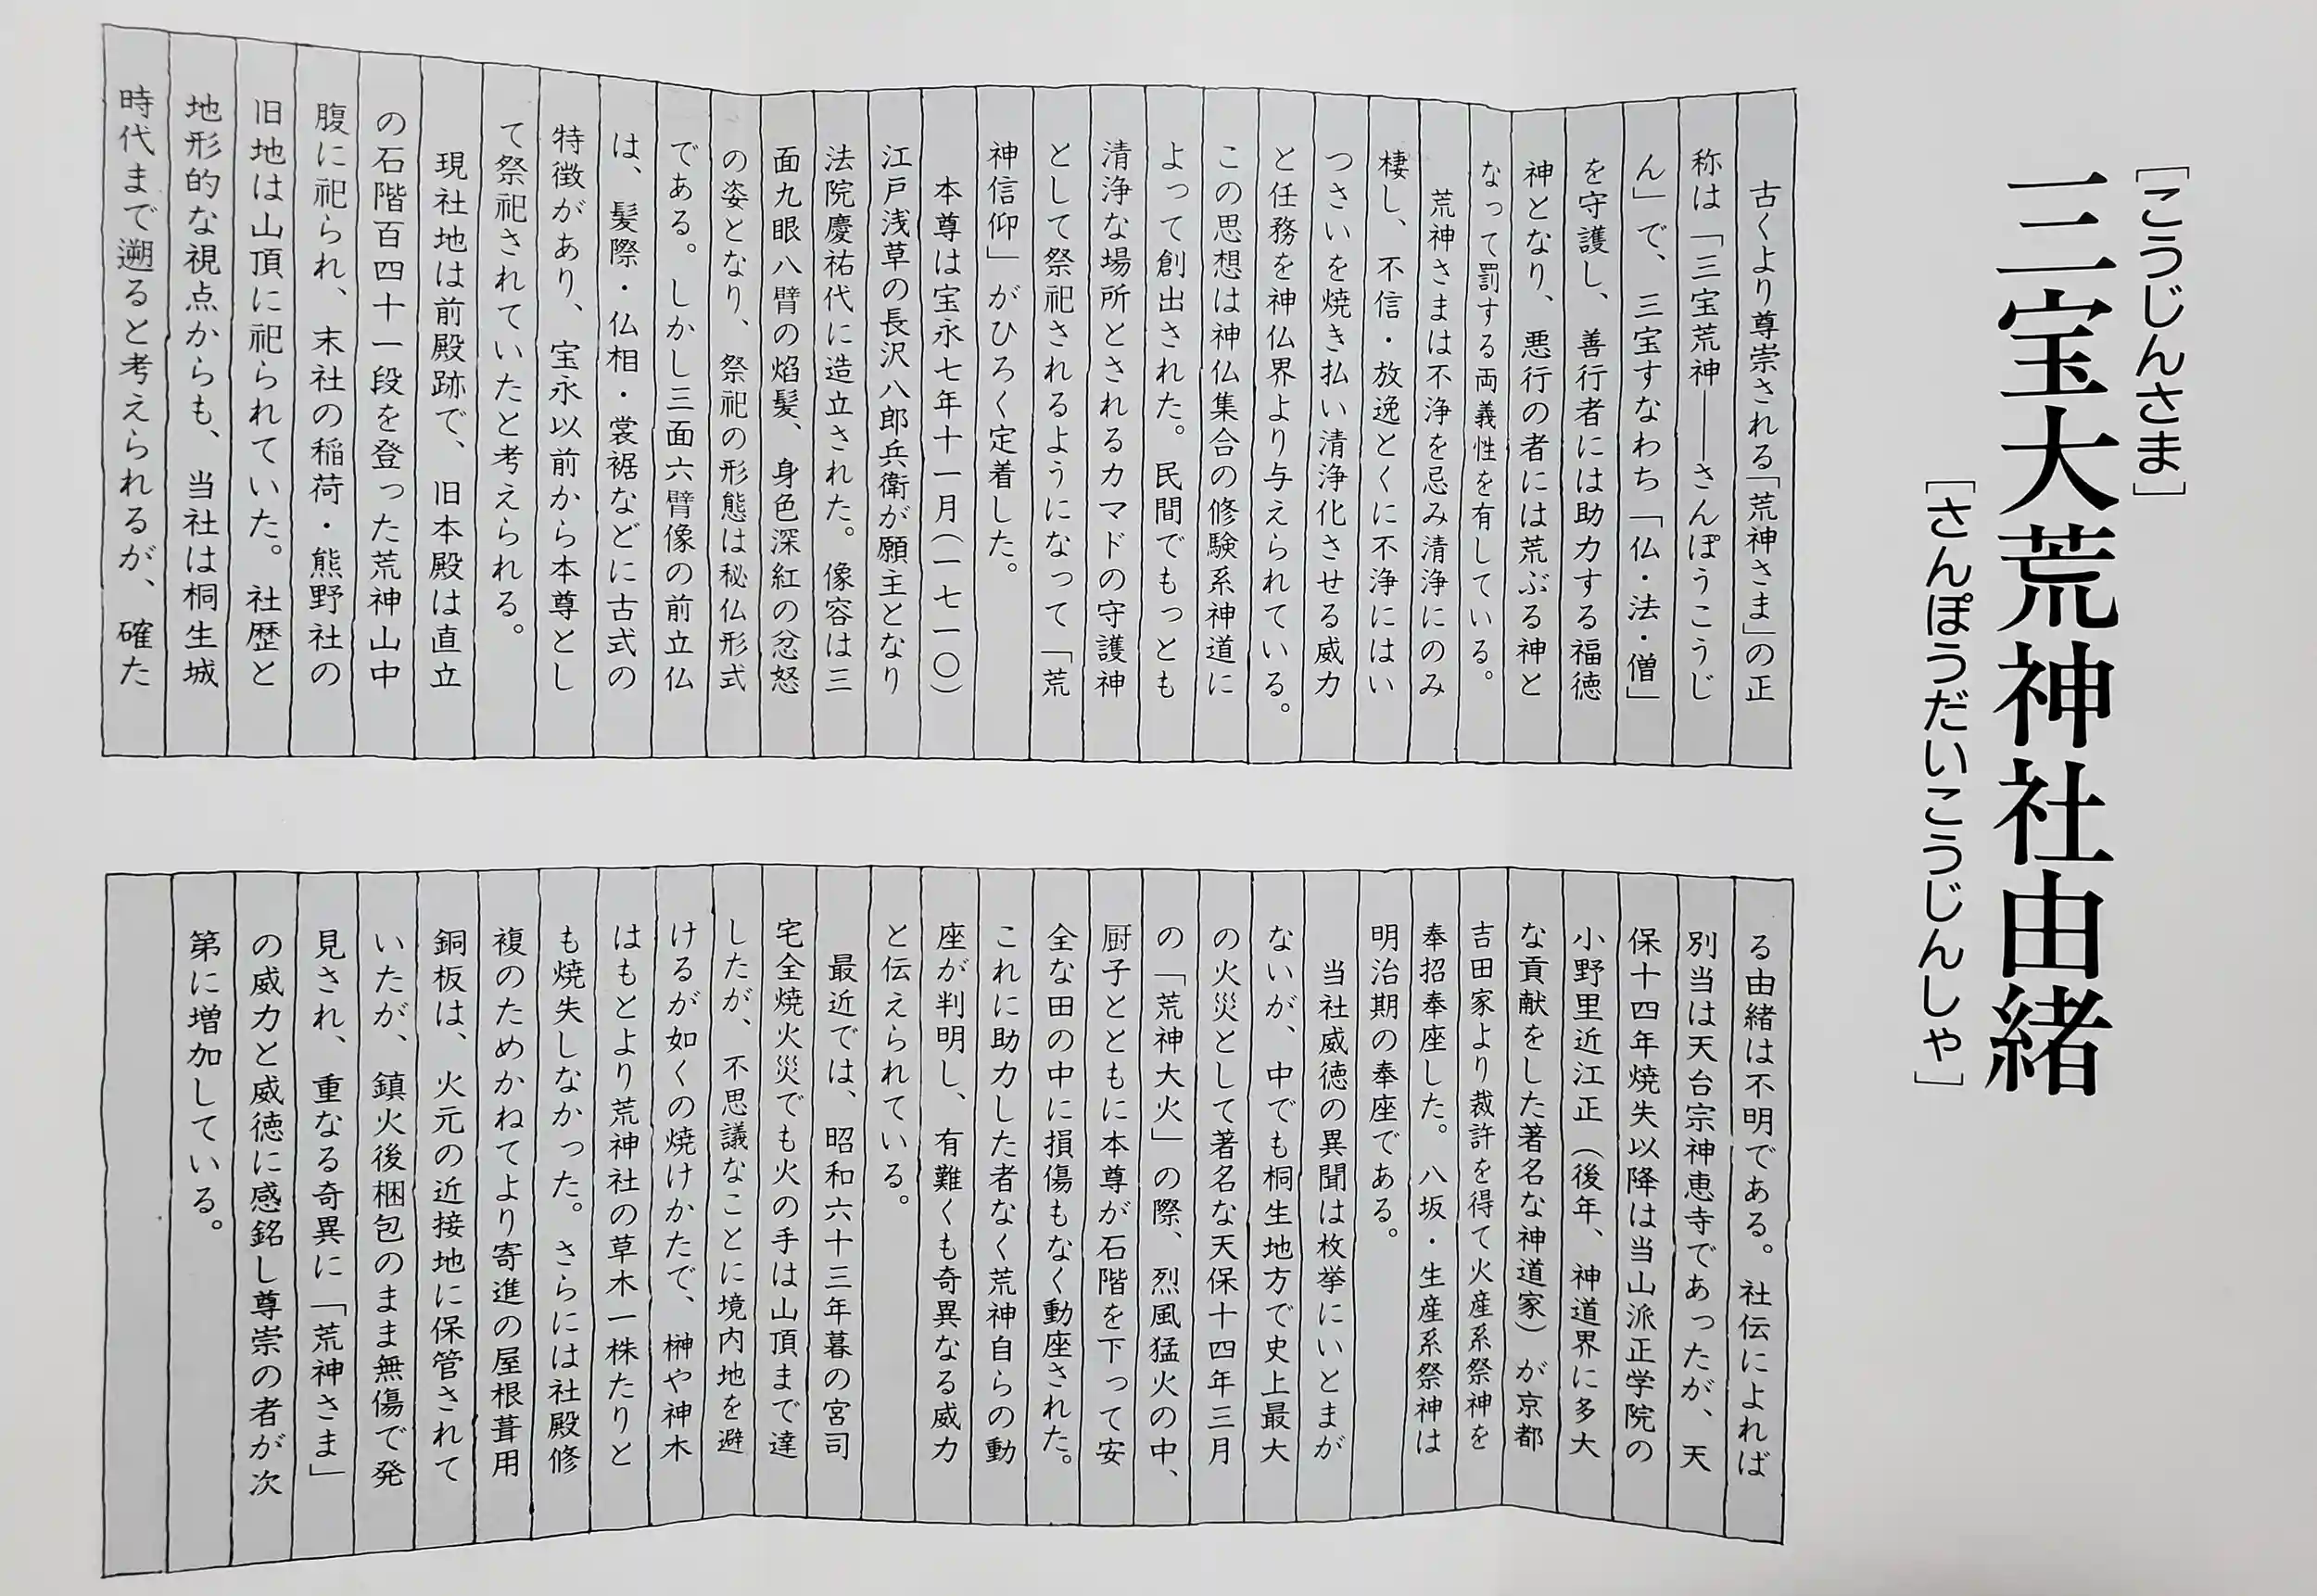 [こうじんさま]
三宝大荒神社由緒
[さんぽうだいこうじんしゃ]
古くより尊崇される「荒神さま」の正
称は「三宝荒神――さんぽうこうじ
ん」で、三宝すなわち「仏・法・僧」
を守護し、善行者には助力する福徳
神となり、悪行の者には荒ぶる神と
なって罰する両義性を有している。
荒神さまは不浄を忌み清浄にのみ
棲し、不信・放逸とくに不浄にはい
つさいを焼き払い清浄化させる威力
と任務を神仏界より与えられている。
この思想は神仏集合の修験系神道に
よって創出された。民間でもっとも
清浄な場所とされるカマドの守護神
として祭祀されるようになって「荒
神信仰」がひろく定着した。
本尊は宝永七年十一月(一七一〇)
江戸浅草の長沢八郎兵衛が願主となり
法院慶祐代に造立された。像容は三
面九眼八臂の焰髪、身色深紅の忿怒
の姿となり、祭祀の形態は秘仏形式
である。しかし三面六臂像の前立仏
は、髪際・仏相・裳裾などに古式の
特徴があり、宝永以前から本尊とし
て祭祀されていたと考えられる。
現社地は前殿跡で、旧本殿は直立
の石階百四十一段を登った荒神山中
腹に祀られ、末社の稲荷・熊野社の
旧地は山頂に祀られていた。社歴と
地形的な視点からも、当社は桐生城
時代まで遡ると考えられるが、確た
る由緒は不明である。社伝によれば
別当は天台宗神恵寺であったが、天
保十四年焼失以降は当山派正学院の
小野里近江正(後年、神道界に多大
な貢献をした著名な神道家)が京都
吉田家より裁許を得て火産系祭神を
奉招奉座した。八坂・生産系祭神は
明治期の奉座である。
当社威徳の異聞は枚挙にいとまが
ないが、中でも桐生地方で史上最大
の火災として著名な天保十四年三月
の「荒神大火」の際、烈風猛火の中、
厨子とともに本尊が石階を下って安
全な田の中に損傷もなく動座された。
これに助力した者なく荒神自らの動
座が判明し、有難くも奇異なる威力
と伝えられている。
最近では、昭和六十三年暮の宮司
宅全焼火災でも火の手は山頂まで達
したが、不思議なことに境内地を避
けるが如くの焼けかたで、榊や神木
はもとより荒神社の草木一株たりと
も焼失しなかった。さらには社殿修
複のためかねてより寄進の屋根葺用
銅板は、火元の近接地に保管されて
いたが、鎮火後梱包のまま無傷で発
見され、重なる奇異に「荒神さま」
の威力と威徳に感銘し尊崇の者が次
第に増加している。